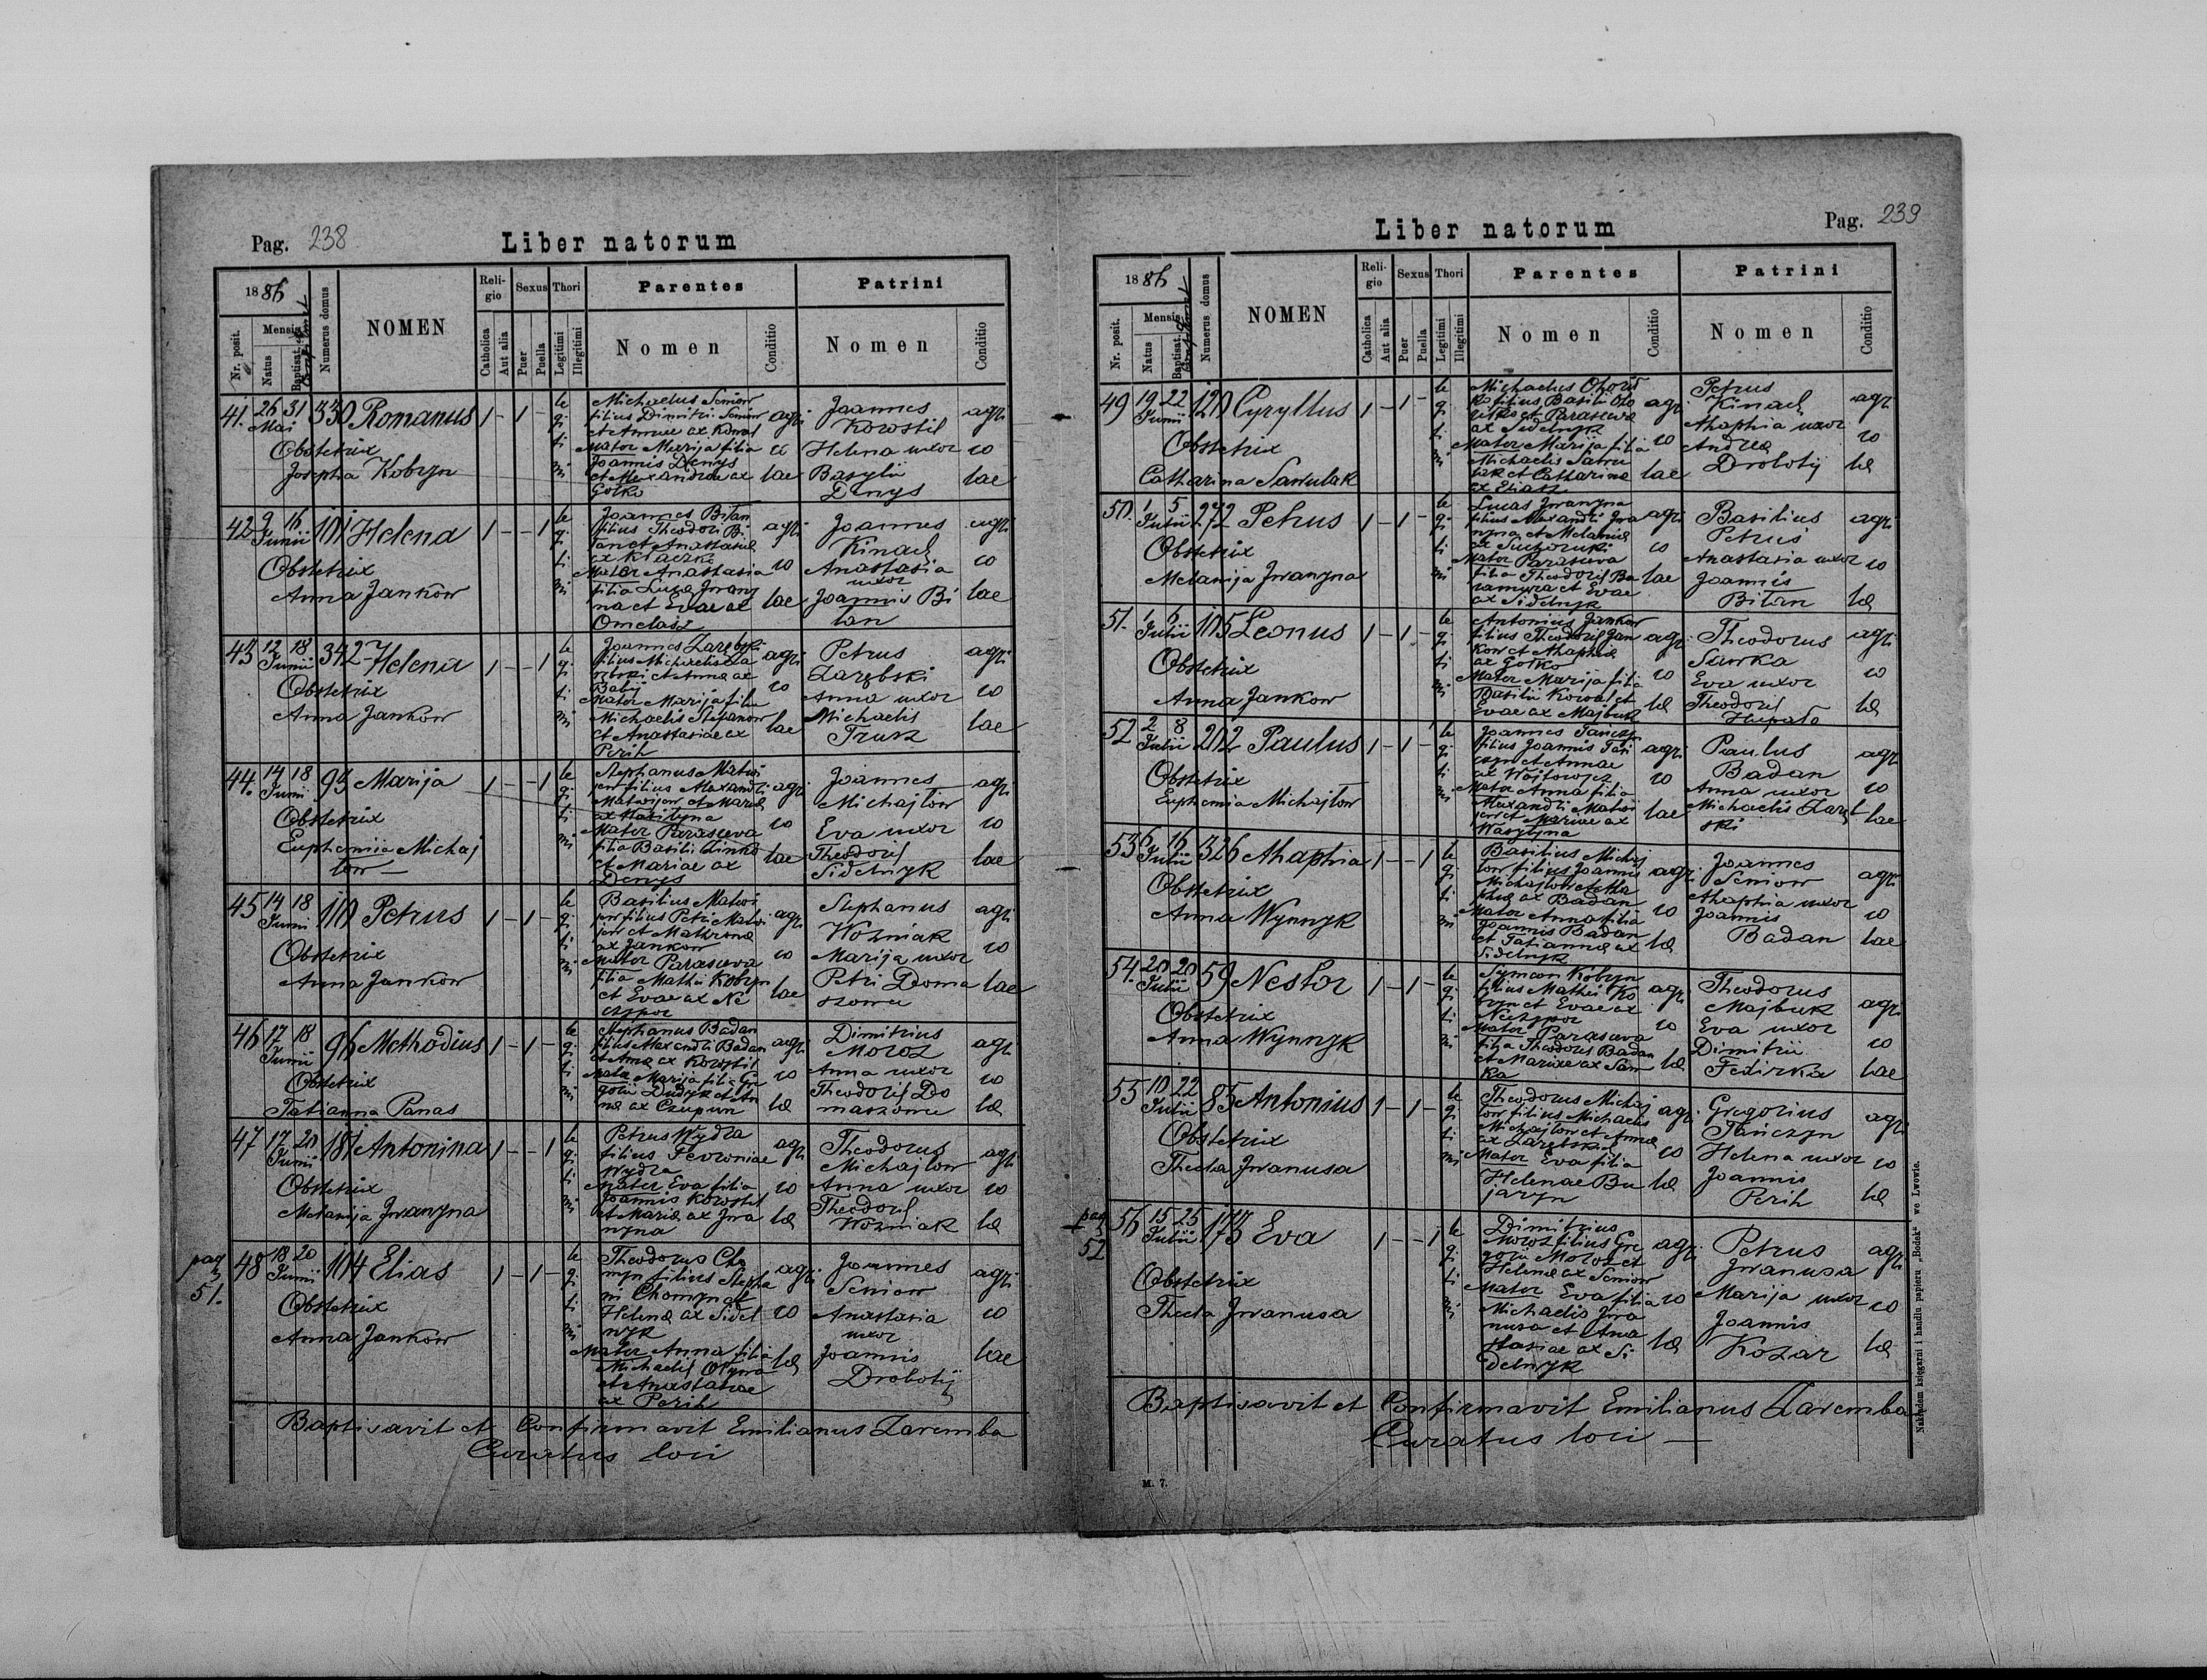 Pag. 238
Liber natorum
1886
Nr. posit.
Mensis
Natus
Baptisat. et Confirmat
Numerus domus
NOMEN
Religio
Catholica
Aut alia
Sexus
Puer
Puella
Thori
Legitimi
Illegitimi
Parentes
Nomen
Conditio
Patrini
Nomen
Conditio
41. 26 31 Mai 330 Romanus 1 - 1 -
Obstetrix
Josepha Kobryn
legitimi
Michaelus Seniow
filius Dimitri Seniow
et Annae ex Kowal
Mater Marija filia
Joannis Denys
et Alexandrae ex
Gołko
agricolae
Joannes
Korostil
Helena uxor
Basylii
Denys
agricolae
42 9 16 Junii 101 Helena 1 - - 1
Obstetrix
Anna Jankow
legitimi
Joannes Bitan
filius Theodori Bi
tan et Anastasiae
ex Klaczko
Mater Anastasia
filia Lucae Jwany
na et Evae ex
Omelasz
agricolae
Joannes
Kinach
Anastasia
uxor
Joannis Bi
tan
agricolae
43 12 18 Junii 342 Helena 1 - - 1
Obstetrix
Anna Jankow
legitimi
Joannes Zarębski
filius Michaelis Za
rębski et Annae ex
Babij
Mater Marija filia
Michaelis Stefanow
et Anastasiae ex
Perih
agricolae
Petrus
Zarębski
Anna uxor
Michaelis
Trusz
agricolae
44. 14 18 Junii 95 Marija 1 - - 1
Obstetrix
Euphemia Michaj
łow
legitimi
Stephanus Matwi
jew filius Alexandri
Matwijow et Mariae
ex Wasilyna
Mater Parasceva
filia Basilii Zinko
et Mariae ex
Denys
agricolae
Joannes
Michajłow
Eva uxor
Theodori
Sidelnyk
agricolae
45 14 18 Junii 110 Petrus 1 - 1 -
Obstetrix
Anna Jankow
legitimi
Basilius Matwi
jew filius Petri Matwi
jew et Mathronae
ex Jankow
Mater Parasceva
filia Mathei Kobryn
et Evae ex Ne
czypor
agricolae
Stephanus
Woźniak
Marija uxor
Petri Doma
szowu
agricolae
46 17 18 Junii 96 Methodius 1 - 1 -
Obstetrix
Tatianna Panas
legitimi
Stephanus Badan
filius Alexandri Badan
et Annae ex Korostil
Mater Marija filia Gre
gorii Dudyk et An
nae ex Czupun
agricolae
Dimitrius
Moroz
Anna uxor
Theodori Do
maszowu
agricolae
47 17 20 Junii 181 Antonina 1 - - 1
Obstetrix
Melanija Jwanyna
legitimi
Petrus Wydra
filius Fevroniae
Wydra
Mater Eva filia
Joannis Korostil
et Mariae ex Jwa
nyna
agricolae
Theodorus
Michajłow
Anna uxor
Theodori
Woźniak
agricolae
pag 3 51.
48 18 20 Junii 104 Elias 1 - 1 -
Obstetrix
Anna Jankow
legitimi
Theodorus Cho
myn filius Stepha
ni Chomyn et
Helenae ex Sidel
nyk
Mater Anna filia
Michaelis Olyna
et Anastasiae
ex Perih
agricolae
Joannes
Seniow
Anastasia
uxor
Joannis
Drobotij
agricolae
Baptisavit et Confirmavit Emilianus Zaremba
Curatus loci
Pag. 239
Liber natorum
1886
Nr. posit.
Mensis
Natus
Baptisat. et Confirmat
Numerus domus
NOMEN
Religio
Catholica
Aut alia
Sexus
Puer
Puella
Thori
Legitimi
Illegitimi
Parentes
Nomen
Conditio
Patrini
Nomen
Conditio
49 19 22 Junii 120 Cyryllus 1 - 1 -
Obstetrix
Catharina Sawulak
legitimi
Michaelus
filius Basilii
et Parascevae
ex Sidelnyk
Mater Marija filia
Michaelis Sawu
lak et Catharinae
ex Eliasz
agricolae
Petrus
Kinach
Ahaphia uxor
Andreae
Drobotij
agricolae
50. 1 5 Julii 272 Petrus 1 - 1 -
Obstetrix
Melanija Jwanyna
legitimi
Lucas Jwanyna
filius Alexandri Jwa
nyna et Melaniae
ex Suchoruki
Mater Parasceva
filia Theodori Ba
ramura et Evae
ex Sidelnyk
agricolae
Basilius
Petrus
Anastasia uxor
Joannis
Bitan
agricolae
51. 1 6 Julii 105 Leonus 1 - 1 -
Obstetrix
Anna Jankow
legitimi
Antonius Jankow
filius Theodori Jan
kow et Ahaphiae
ex Gołko
Mater Marija filia
Basilii Kowal et
Evae ex Majbuk
agricolae
Theodorus
Sawka
Eva uxor
Theodori
Hupało
agricolae
52 2 8 Julii 202 Paulus 1 - 1 -
Obstetrix
Euphemia Michajłow
legitimi
Joannes Tańczyn
filius Joannis Tań
czyn et Annae
ex Wojtowycz
Mater Anna filia
Alexandri Matwi
jew et Mariae ex
Wasylyna
agricolae
Paulus
Badan
Anna uxor
Michaelis Zaręb
ski
agricolae
53 6 16 Julii 326 Ahaphia 1 - - 1
Obstetrix
Anna Wynnyk
legitimi
Basilius Michaj
low filius Joannis
Michajlow et Aha
phiae ex Badan
Mater Anna filia
Joannis Badan
et Tatiannae ex
Sidelnyk
agricolae
Joannes
Seniow
Ahaphia uxor
Joannis
Badan
agricolae
54. 20 20 Julii 59 Nestor 1 - 1 -
Obstetrix
Anna Wynnyk
legitimi
Symeon Kobryn
filius Mathei Ko
bryn et Evae ex
Neczypor
Mater Parasceva
filia Theodori Badan
et Mariae ex Saw
ka
agricolae
Theodorus
Majbuk
Eva uxor
Dimitrii
Fedirka
agricolae
55 10 22 Julii 85 Antonius 1 - 1 -
Obstetrix
Thecla Jwanusa
legitimi
Theodorus Michaj
low filius Michaelis
Michajlow et Annae
ex Zarębski
Mater Eva filia
Helenae Bu
jaryn
agricolae
Gregorius
Tańczyn
Helena uxor
Joannis
Perih
agricolae
pag 52
56 15 25 Julii 173 Eva 1 - - 1
Obstetrix
Thecla Jwanusa
legitimi
Dimitrius
Moroz filius Gre
gorii Moroz et
Helenae ex Seniow
Mater Eva filia
Michaelis Jwa
nusa et Ana
stasiae ex Si
delnyk
agricolae
Petrus
Jwanusa
Marija uxor
Joannis
Kozar
agricolae
Baptisavit et Confirmavit Emilianus Zaremba
Curatus loci
M. 7.
Nakładem księgarni i handlu papieru „Bodek" we Lwowie.